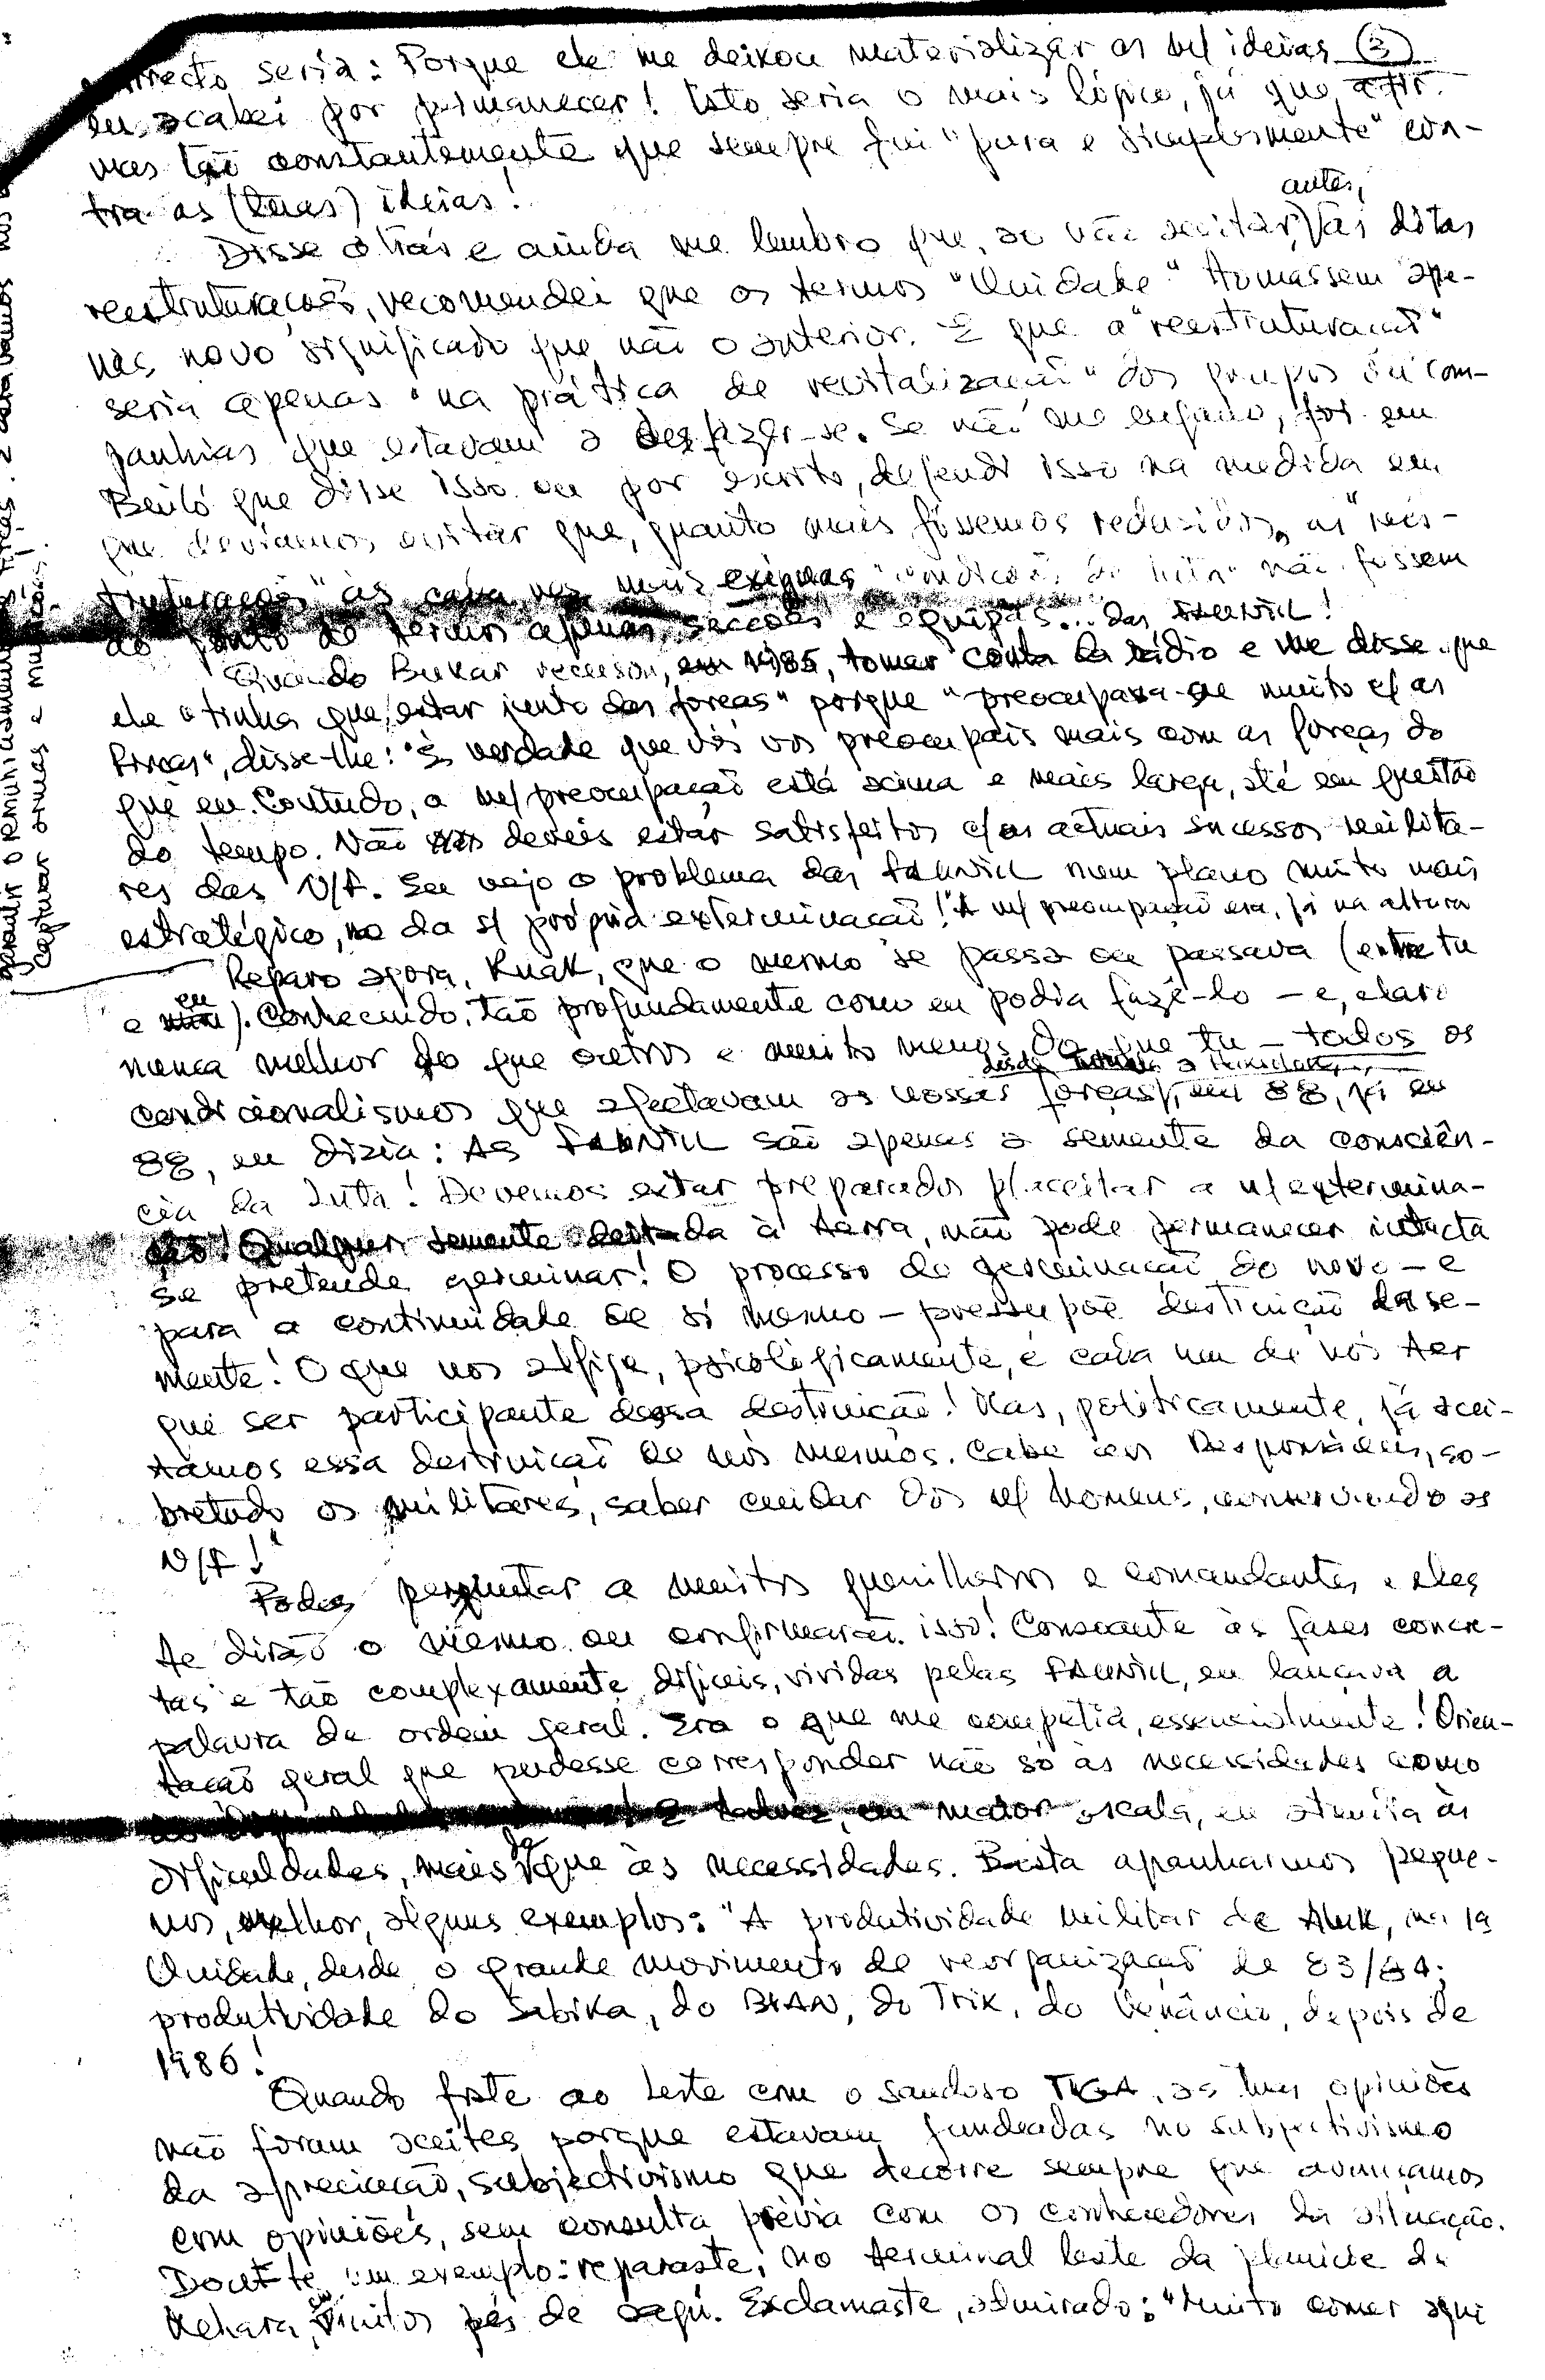 correcto seria: Porque ele me deixou materializar as m/ ideias (3)
eu acabei por permanecer! Isto seria o mais lógico, já que afir-
mas tão constantemente que sempre fui "pura e simplesmente" con-
tra as (tuas) ideias!
Disse atrás e ainda me lembro que, ao não aceitar, antes, as ditas
reestruturações, recomendei que os termos "Unidade" tomassem ape-
nas novo significado que não o anterior. E que a "reestruturação"
seria apenas "na prática de revitalização" dos grupos ou com-
panhias que estavam a desfazer-se. Se não me engano, foi em
que disse isso ou por escrito, defendi isso na medida em
que devíamos evitar que, quanto mais fôssemos reduzidos, as "rees-
truturações" às cada vez mais exíguas "condições de luta" não fossem
ao ponto de termos apenas secções e equipas... das FALINTIL!
Quando Bukar recusou, em 1985, tomar conta da rádio e me disse que
ele "tinha que estar junto das forças" porque "preocupava-se muito c/ as
forças", disse-lhe: "É verdade que vós vos preocupais mais com as forças do
que eu. Contudo, a m/ preocupação está acima e mais larga, até em questão
do tempo. Não deveis estar satisfeitos c/ os actuais sucessos milita-
res das N/F. Eu vejo o problema das FALINTIL num plano muito mais
estratégico, no da s/ própria exterminação!" A m/ preocupação era, já na altura
garantir
capturar armas e munições!
Reparo agora, Ruak, que o mesmo se passa ou passava (entre tu
e eu). Conhecendo, tão profundamente como eu podia fazê-lo – e, claro
nunca melhor do que outros e muito menos do que tu – todos os
condicionalismos que afectavam as nossas forças, em 88, já em
88, eu dizia: As FALINTIL são apenas a semente da consciên-
cia da Luta! Devemos estar preparados p/ aceitar a n/ extermina-
ção! Qualquer semente deitada à terra, não pode permanecer intacta
se pretende germinar! O processo de germinação do novo – e
para a continuidade de si mesmo – pressupõe destruição da se-
mente! O que nos aflige, psicologicamente, é cada um de nós ter
que ser participante dessa destruição! Mas, politicamente, já acei-
támos essa destruição de nós mesmos. Cabe aos Responsáveis, so-
bretudo os militares, saber cuidar dos n/ homens, conservando as
N/F!"
Podes perguntar a muitos guerrilheiros e comandantes e eles
te dirão o mesmo ou confirmarão isso! Consoante às fases concre-
tas e tão complexamente difíceis, vividas pelas FALINTIL, eu lançava a
palavra de ordem geral. Era o que me competia, essencialmente! Orien-
tação geral que pudesse corresponder não só às necessidades como
e talvez, em maior escala, eu atendia às
dificuldades, mais do que às necessidades. Basta apanharmos peque-
nos, melhor, alguns exemplos: "A produtividade militar de Aluk, na 1a
Unidade, desde o grande movimento de reorganização de 83/84;
produtividade do Sabika, do BIAN, do Trix, do Venâncio, depois de
1986!
Quando foste ao Leste com o saudoso TIGA, as tuas opiniões
não foram aceites porque estavam fundeadas no subjectivismo
da apreciação, subjectivismo que decorre sempre que avançamos
com opiniões, sem consulta prévia com os conhecedores da situação.
Dou-te um exemplo: reparaste, no terminal leste da planície de
Mehara, em muitos pés de . Exclamaste, admirado: "Muito comer aqui